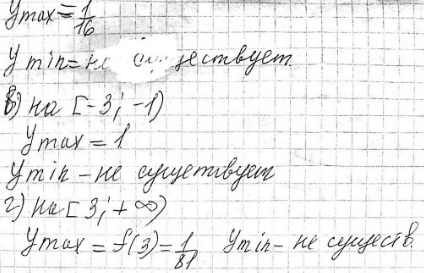 Ymax = 1/16
Ymin = не существует
в) на [-3; -1)
Ymax = 1
Ymin - не существует
г) на [3; +∞)
Ymax = f(3) = 1/81 Ymin - не существ.